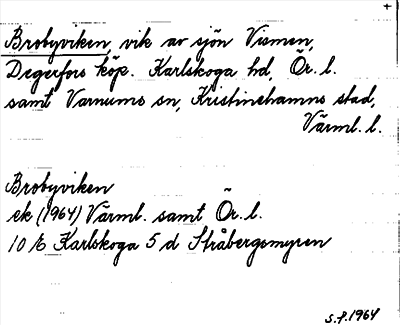 +
Brobyviken, vik av sjön Vismen,
Degerfors köp. Karlskoga hd, Ör. l.
samt Varnums sn, Kristinehamns stad,
Värml. l.
Brobyviken
ek (1964) Värml. samt Ör. l.
10 E Karlskoga 5 d Stråbergsmyren
S.P. 1964